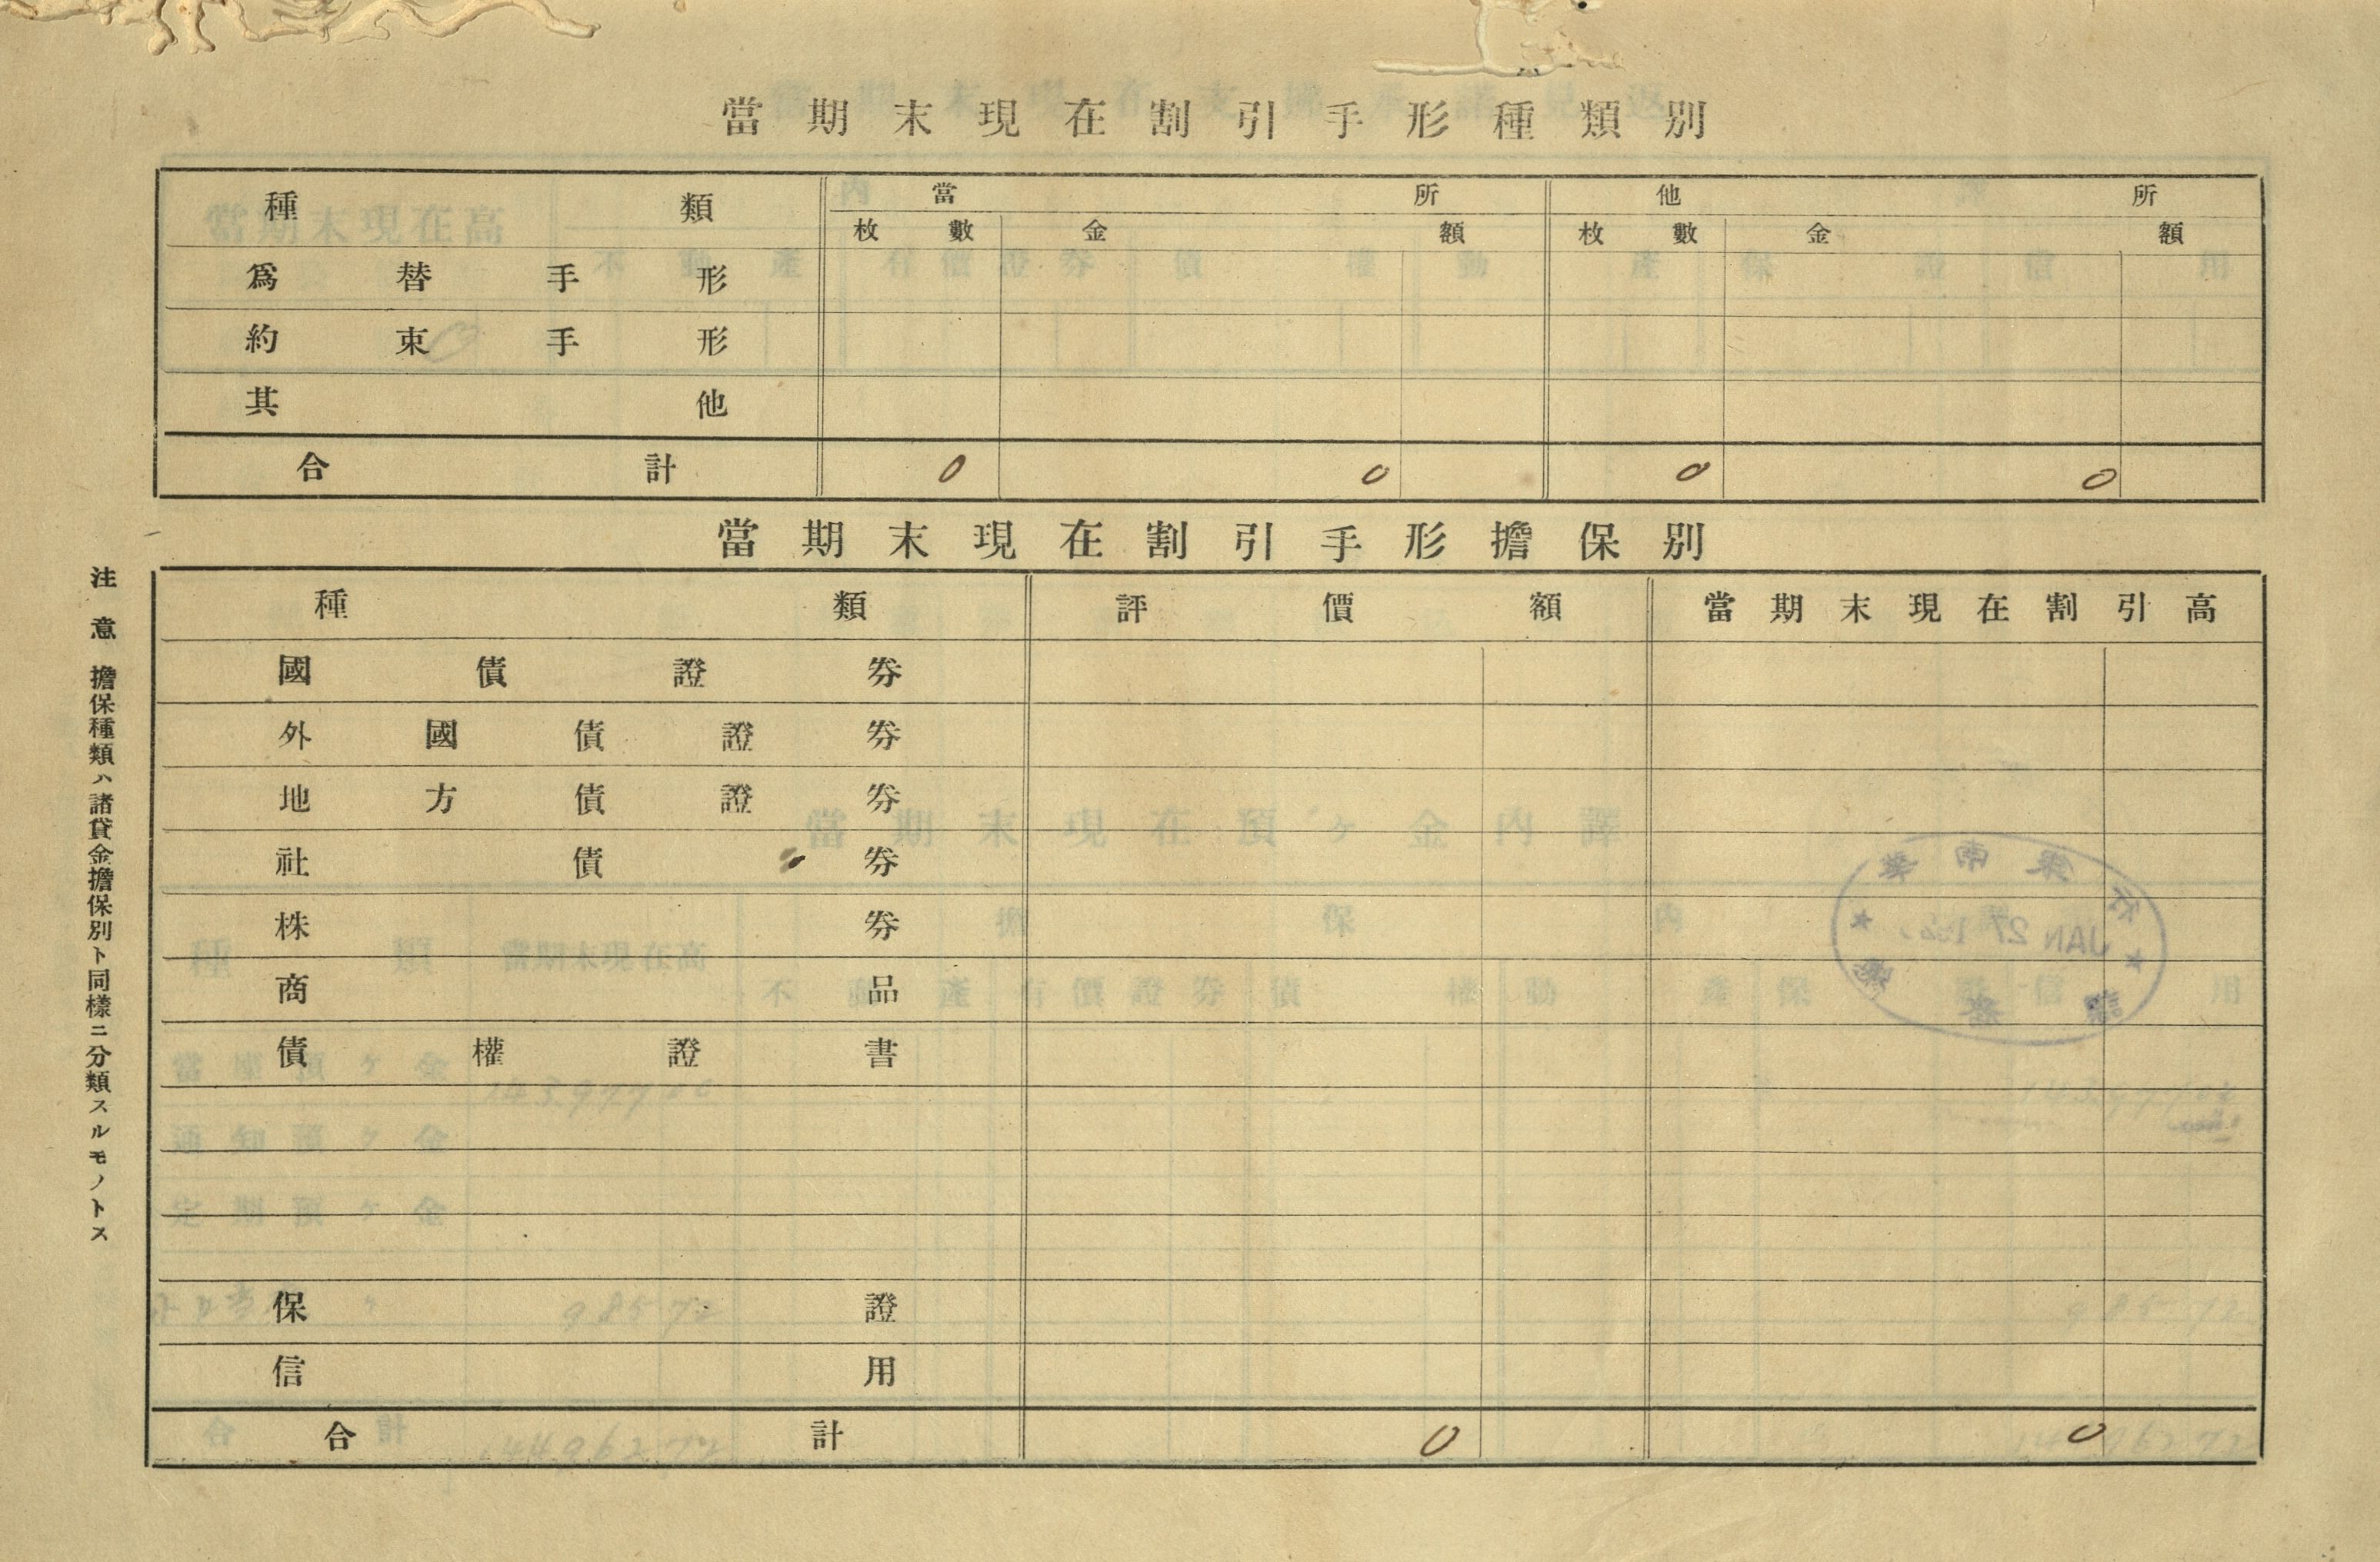 當期末現在割引手形種類別
種類 當所 他所
枚數 金額 枚數 金額
爲替手形
約束手形
其他
合計 0 0 0 0
當期末現在割引手形擔保別
種類 評價額 當期末現在割引高
國債證券
外國債證券
地方債證券
社債券
株券
商品
債權證書
保證
信用
合計 0 0
注意 擔保種類ハ諸貸金擔保別ト同樣ニ分類スルモノトス